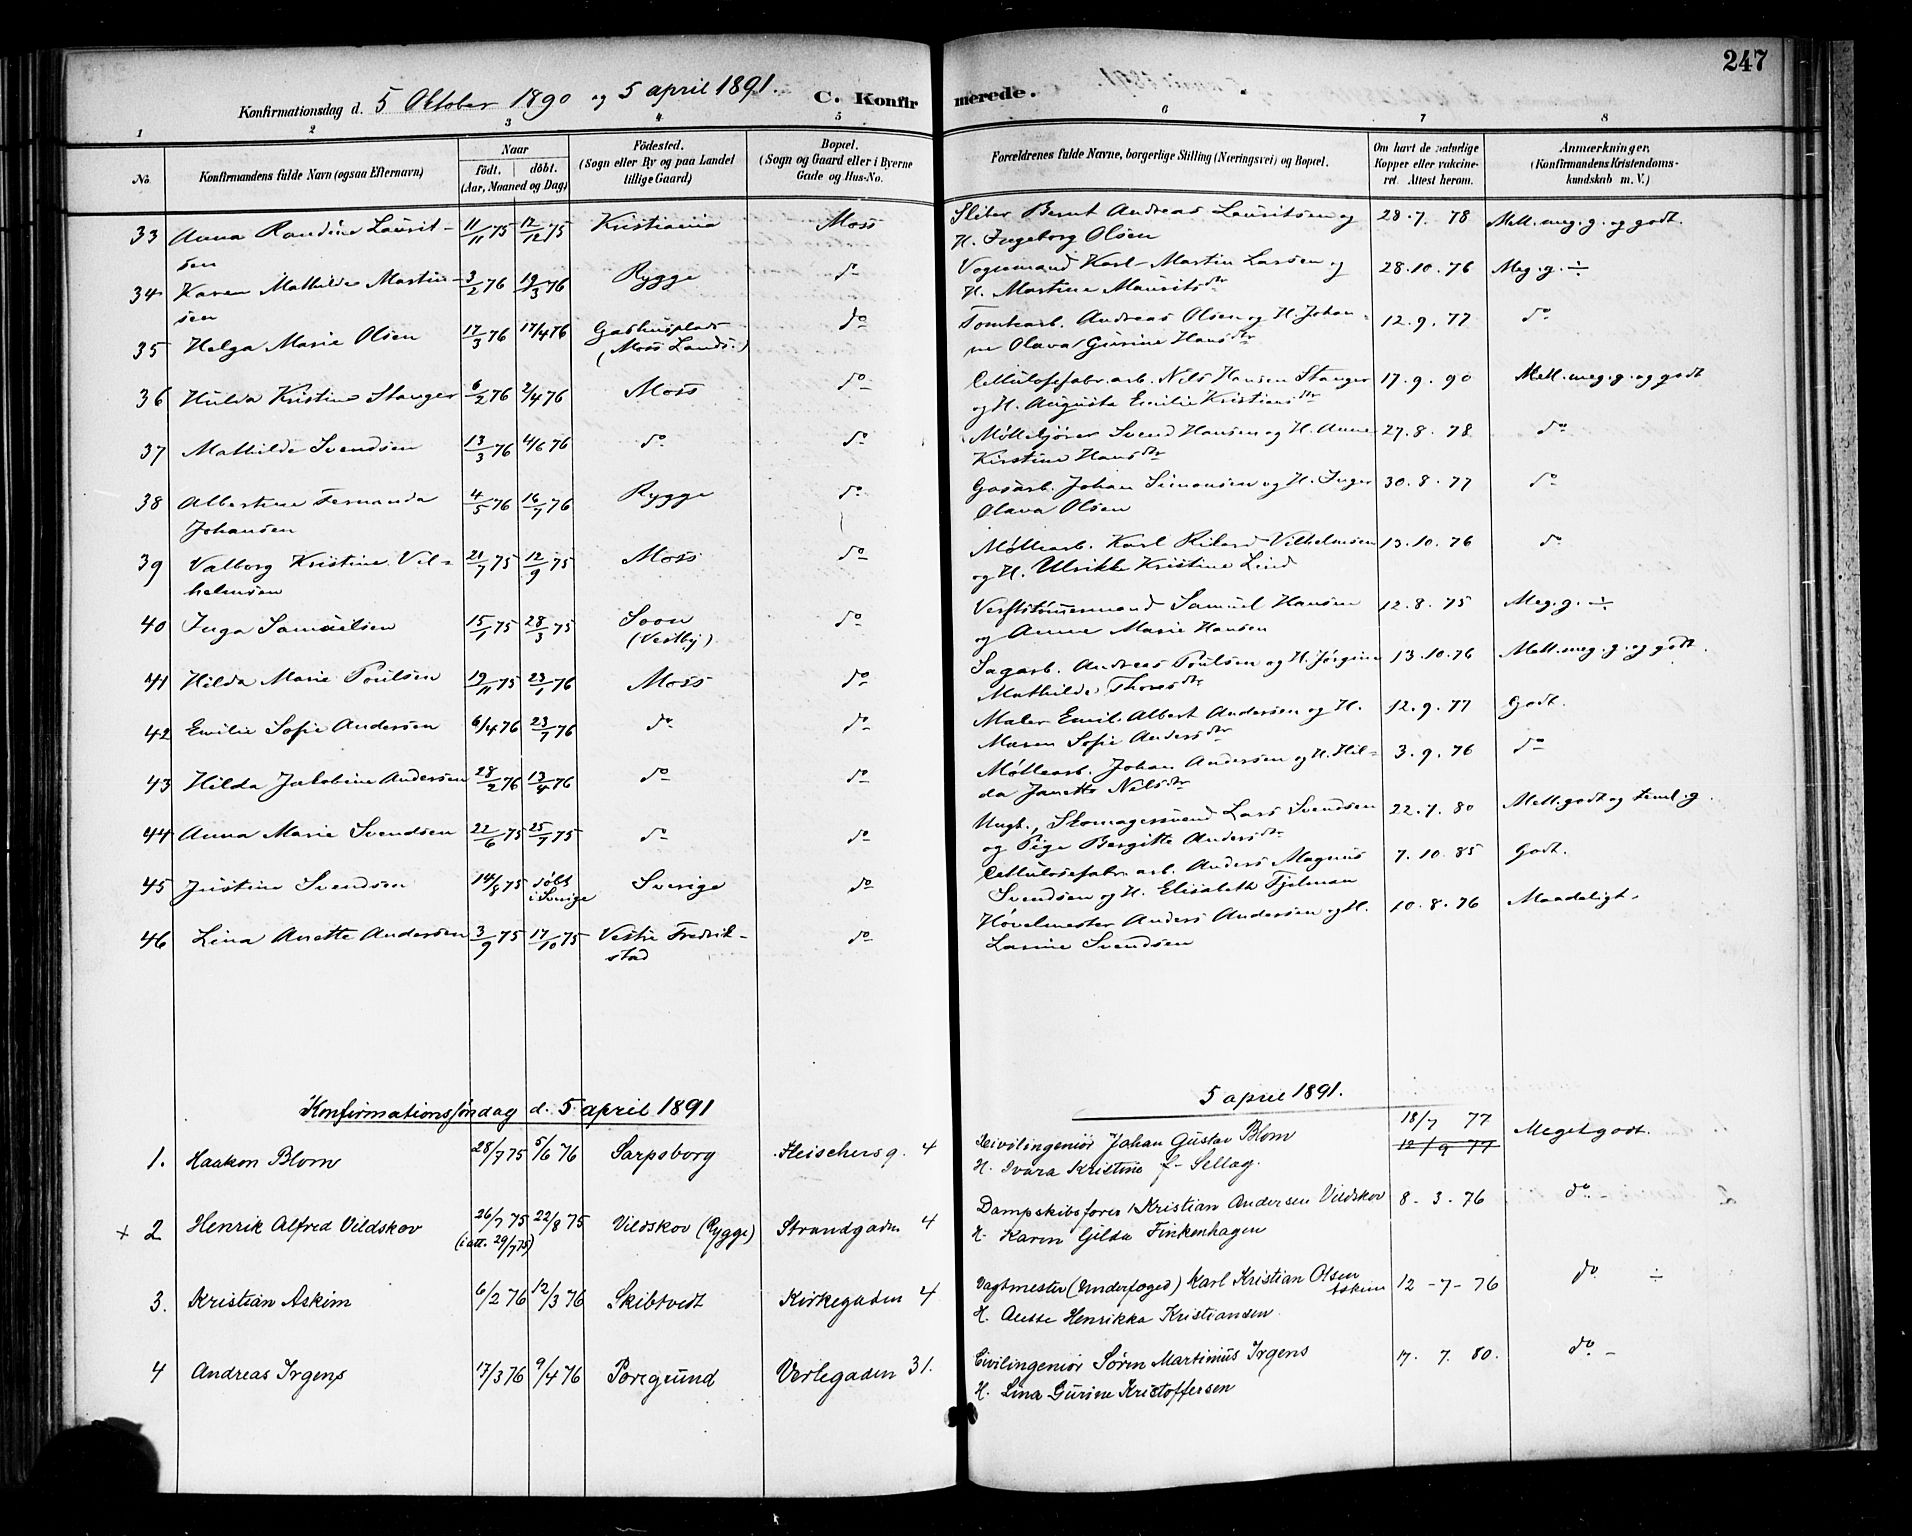 247
Konfirmationsdag d. 5 Oktober 1890 og 5 april 1891. C. Konfirmerede.
1 2 3 4 5 6 7 8
No. Konfirmandens fulde Navn (ogsaa Efternavn) Naar födt. döbt. (Aar, Maaned og Dag) Födested. (Sogn eller By og paa Landet tillige Gaard) Bopæl. (Sogn og Gaard eller i Byerne Gade og Hus-No. Forældrenes fulde Navne, borgerlige Stilling (Næringsvei) og Bopæl. Om havt de naturlige Kopper eller vakcineret. Attest herom. Anmærkninger. (Konfirmandens Kristendomskundskab m. V.)
33 Anna Randine Laurit- 11/11 75 12/12 75 Kristiania Moss Sliber Bernt Andreas Lauritsen og 28.7. 78 Mell. meg. g. og godt.
sen H. Ingeborg Olsen
34 Karen Mathilde Martin- 3/2 76 19/3 76 Rygge do Vognmand Karl Martin Larsen og 28.10.76 Meg. g. ÷
sen H. Martine Mauritsdtr
35 Helga Marie Olsen 17/3 76 17/4 76 Gashusplads do Tomtearb. Andreas Olsen og H. Johan- 12.9.77 do
(Moss Lands.) ne Olava Gurine Hansdtr
36 Hulda Kristine Stanger 6/2 76 2/4 76 Moss do Cellulosefabr. arb. Nils Hansen Stanger 17.9.90 Mell. meg. g. og godt
og H. Augusta Emilie Kristiansdtr
37 Mathilde Svendsen 13/3 76 4/6 76 do do Møllekjører Svend Hansen og H. Anne 27.8.78 do
Kirstine Hansdtr
38 Albertine Fernanda 4/5 76 16/7 76 Rygge do Gasarb. Johan Simonsen og H. Inger 30.8.77 do
Johansen Olava Olsen
39 Valborg Kristine Vil- 21/7 75 12/9 75 Moss do Møllearb. Karl Rikard Vilhelmsen 13.10.76 do
helmsen og H. Ulrikke Kristine Lind
40 Inga Samuelsen 15/1 75 28/3 75 Soon do Verftstømmermand Samuel Hansen 12.8.75 Meg. g. ÷
(Vestby) og Anne Marie Hansen
41 Hilda Marie Poulsen 19/11 75 23/1 76 Moss do Sagarb. Andreas Poulsen og H. Jørgine 13.10.76 Mell. meg. g. og godt.
Mathilde Thoresdtr
42 Emilie Sofie Andersen 6/4 76 23/7 76 do do Maler Emil Albert Andersen og H. 12.9.77 Godt.
Maren Sofie Andersdtr
43 Hilda Jakobine Andersen 28/2 76 13/4 76 do do Møllearb. Johan Andersen og H. Hil- 3.9.76 do
da Janette Nilsdtr
44 Anna Marie Svendsen 22/6 75 25/7 75 do do Ungk., Skomagersvend Lars Svendsen 22.7.80 Mell. godt og teml. g.
og Pige Bergitte Andersdtr
45 Justine Svendsen 14/8 75 døbt Sverige do Cellulosefabr. arb. Anders Magnus 7.10.85 Godt.
i Sverige Svendsen og H. Elisabeth Tjelman
46 Lina Anette Andersen 3/9 75 17/10 75 Vestre Fredrik- do Høvelmester Anders Andersen og H. 10.8.76 Maadeligt.
stad Larine Svendsen
Konfirmationssøndag d. 5 april 1891 5 april 1891.
1. Haakon Blom 28/7 75 5/6 76 Sarpsborg Fleischersg. 4 Civilingeniör Johan Gustav Blom 18/7 77 Meget godt.
H. Ivara Kristine f. Selläg. 12/9 77
+ 2 Henrik Alfred Vildskov 26/7 75 22/8 75 Vildskov (Rygge) Strandgaden 4 Dampskibsfører Kristian Andersen Vildskov 8-3.76 do
(i att. 29/7 75) H. Karen Gilda Finkenhagen
3. Kristian Askim 6/2 76 12/3 76 Skibtvedt Kirkegaden 4 Vagtmester (Underfoged) Karl Kristian Olsen Askim 12-7-76 do ÷
H. Anette Henrikka Kristiansen
4 Andreas Irgens 17/3 76 9/4 76 Porsgrund Værlegaden 31. Civilingeniör Sören Martinius Irgens 17.7.80. do -
H. Lina Gurine Kristoffersen